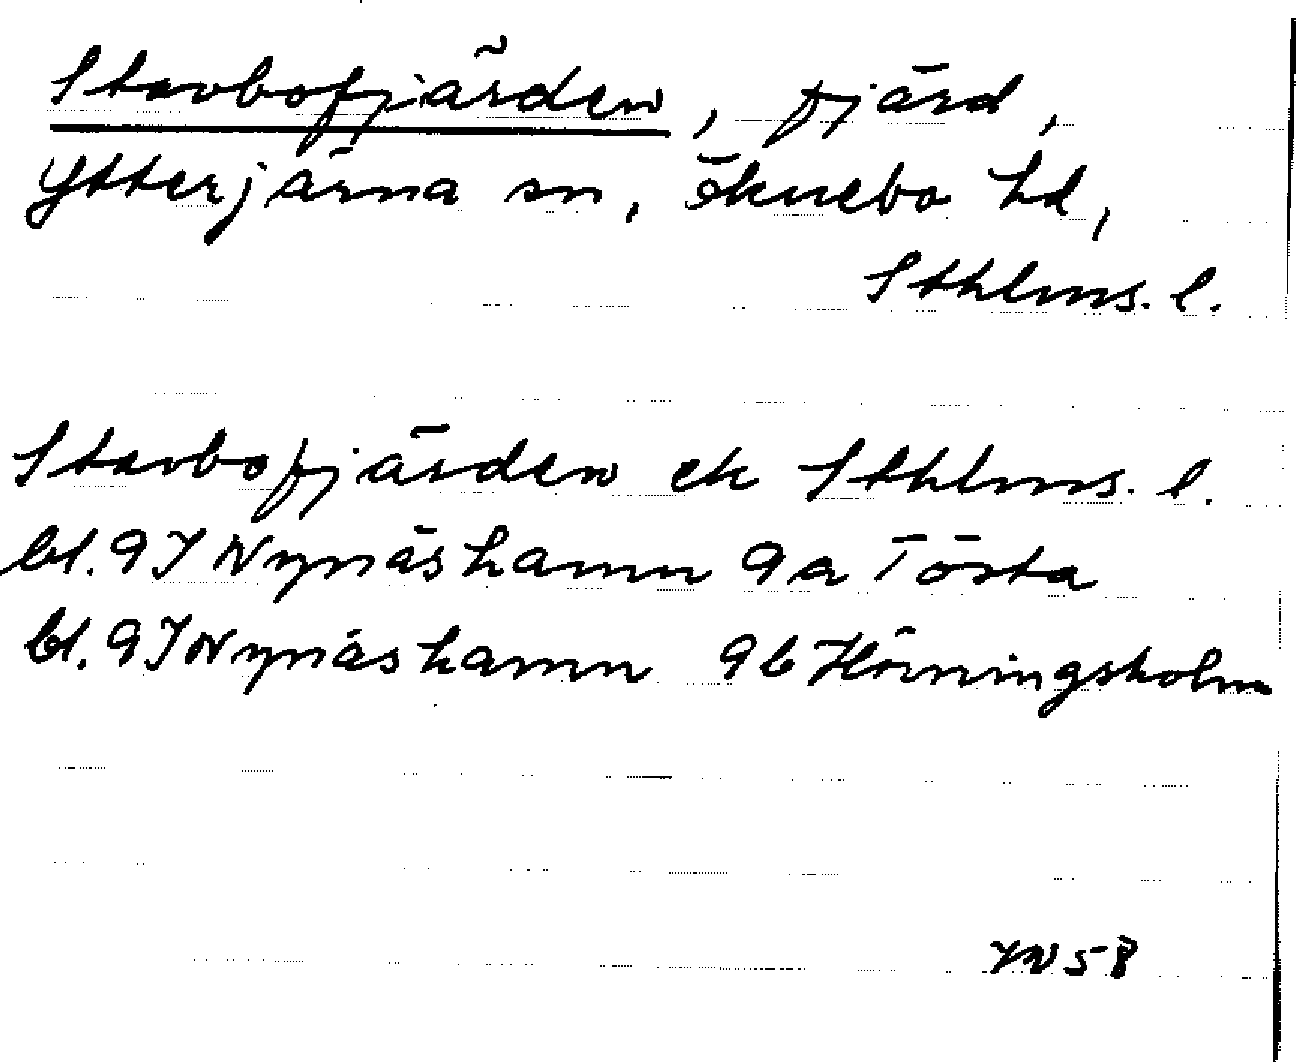 Stavbofjärden, fjärd,
Ytterjärna sn, Öknebo hd,
Sthlms. l.
Stavbofjärden ek Sthlms. l.
bl. 9I Nynäshamn 9a Tösta
bl. 9I Nynäshamn 9b Hörningsholm
58